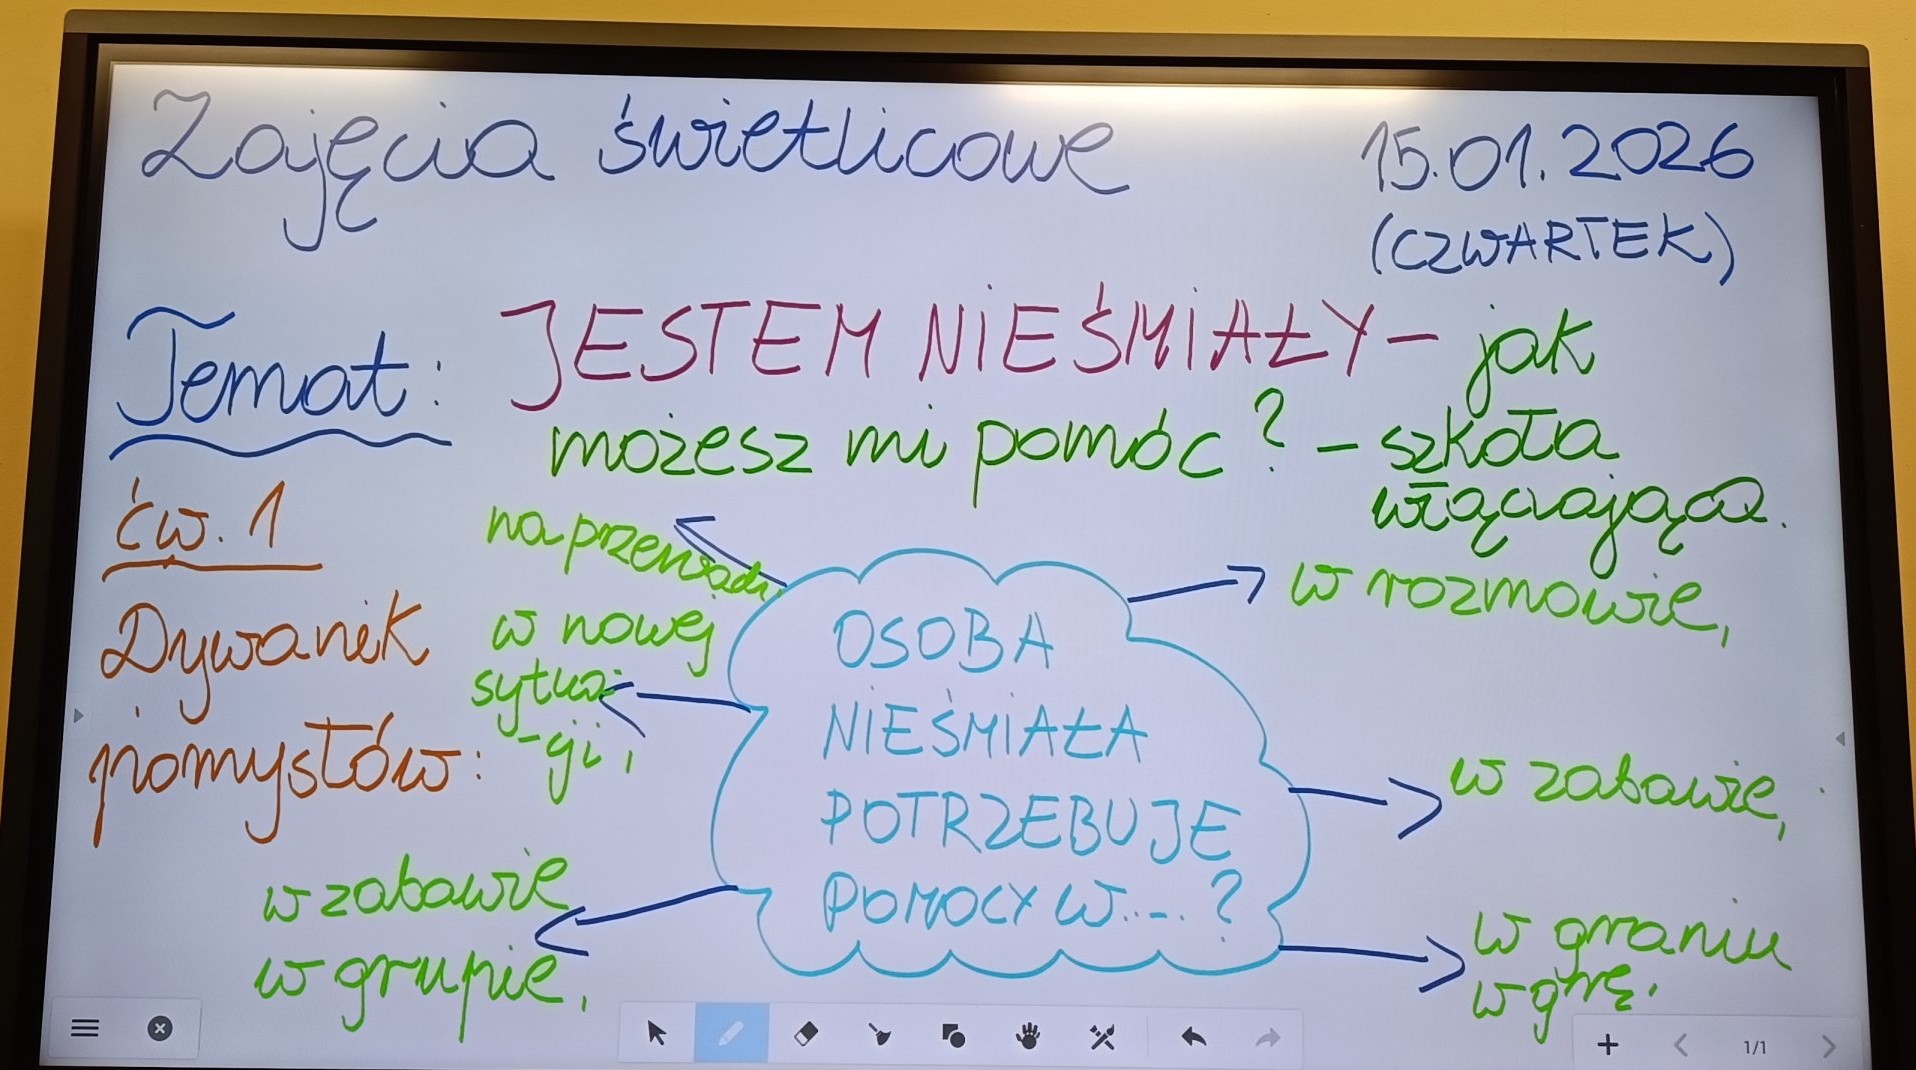 Zajęcia świetlicowe
15.01.2026
(CZWARTEK)
Temat: JESTEM NIEŚMIAŁY - jak
możesz mi pomóc? - szkoła
włączająca.
ćw. 1
Dywanik
pomysłów:
OSOBA
NIEŚMIAŁA
POTRZEBUJE
POMOCY W....?
na przerwach,
w nowej
sytua-
-cji,
w zabawie
w grupie,
w rozmowie,
w zabawie,
w graniu
w grę.
1/1